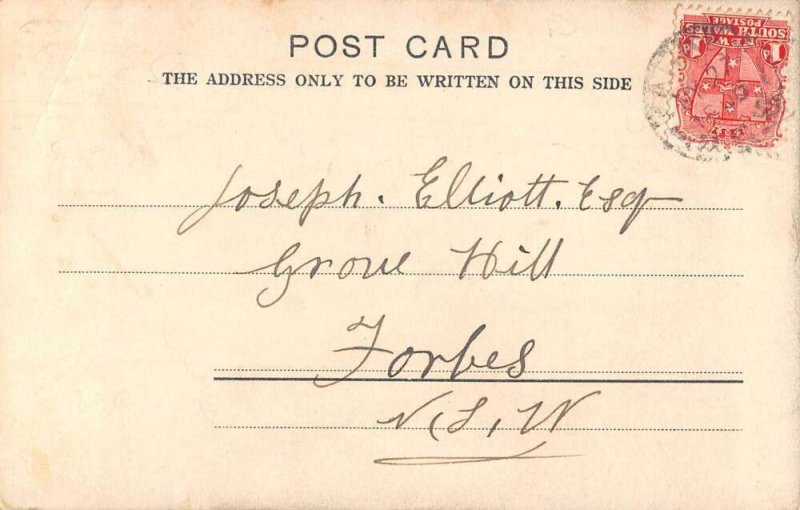 POST CARD
THE ADDRESS ONLY TO BE WRITTEN ON THIS SIDE
NEW
SOUTH WALES
POSTAGE
Joseph. Elliott. Esq
Grove Hill
Forbes
N.S.W